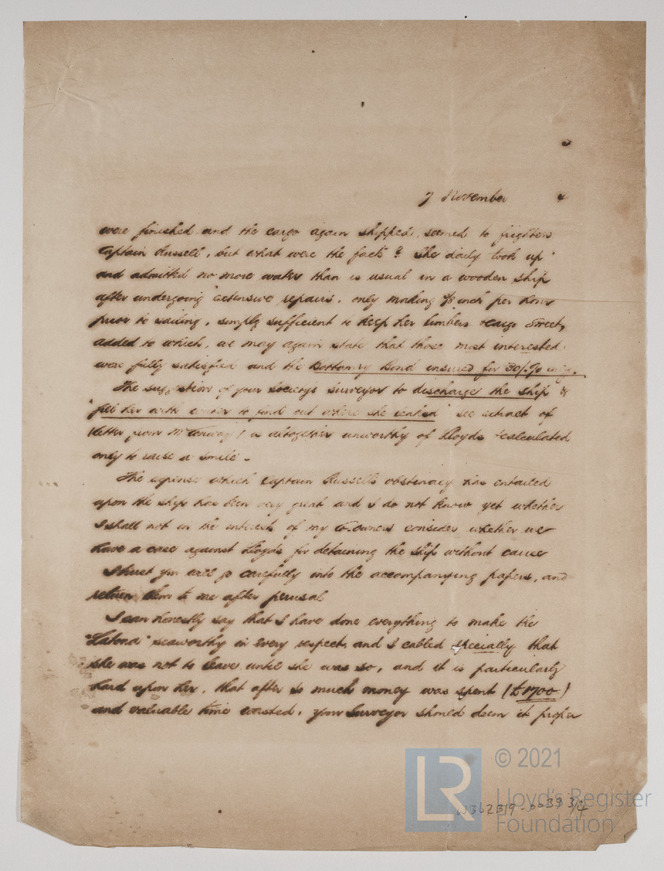 7 November 4
were finished and the cargo again shipped, seemed to frighten
Captain Russell, but what were the facts? She daily took up
and admitted no more water than is usual in a wooden ship
after undergoing extensive repairs, only making inch per hour
prior to sailing, simply sufficient to keep her limbers sweet,
added to which, we may again state that those most interested
were fully satisfied and the Bottomry Bond insured for
The suggestion of your Societys Surveyor to discharge the ship &
fill her with water to find out where she leaked" see extract of
letter from Mr is altogether unworthy of Lloyds calculated
only to raise a smile.
The expense which Captain Russell's obstenacy has entailed
upon the ship has been very great and I do not know yet whether
I shall not in the interest of my Coowners consider whether we
have a case against Lloyds for detaining the ship without cause
I trust you will go carefully into the accompanying papers, and
return them to me after perusal
I can honestly say that I have done everything to make the
seaworthy in every respect, and I cabled specially that
she was not to leave until she was so, and it is particularly
hard upon her, that after so much money was spent (£1700)
and valuable time wasted, your Surveyor should deem it proper
3/4
LR
© 2021
Lloyd's Register
Foundation